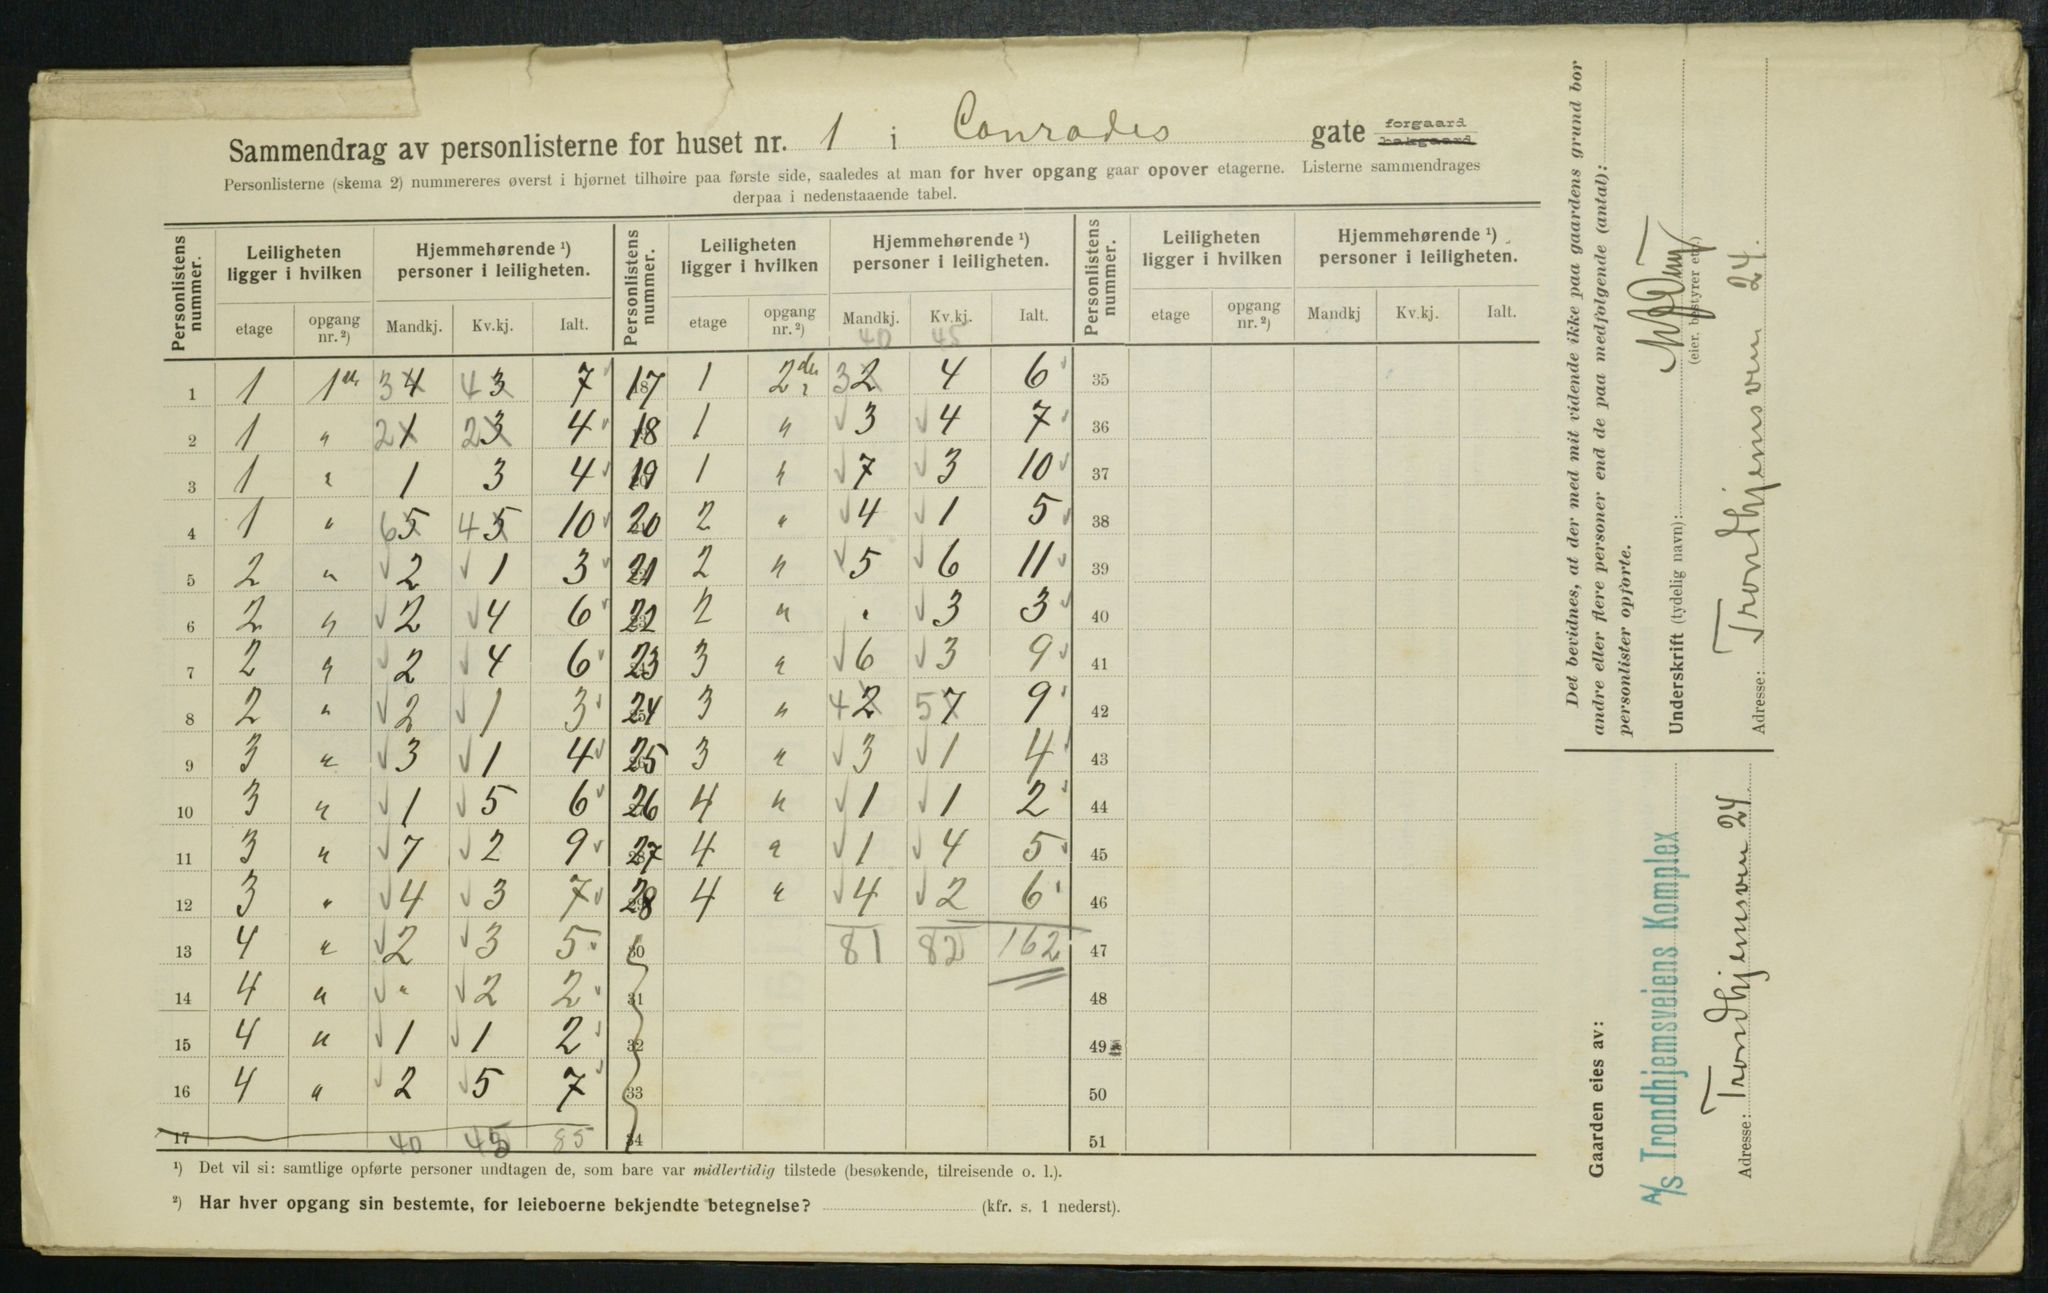 Sammendrag av personlisterne for huset nr. 1 i Conrades gate forgaard bakgaard
Personlisterne (skema 2) nummereres øverst i hjørnet tilhøire paa første side, saaledes at man for hver opgang gaar opover etagerne. Listerne sammendrages
derpaa i nedenstaaende tabel.
Personlistens nummer. Leiligheten ligger i hvilken Hjemmehørende ¹) personer i leiligheten. Personlistens nummer. Leiligheten ligger i hvilken Hjemmehørende ¹) personer i leiligheten. Personlistens nummer. Leiligheten ligger i hvilken Hjemmehørende ¹) personer i leiligheten.
etage opgang nr. ²) Mandkj. Kv.kj. Ialt. etage opgang nr. ²) Mandkj. Kv.kj. Ialt. etage opgang nr. ²) Mandkj Kv.kj. Ialt.
40 45
1 1 1 3 4 4 3 7 17 1 2 3 2 4 6 35
2 1 " 2 1 2 3 4 18 1 " 3 4 7 36
3 1 " 1 3 4 19 1 " 7 3 10 37
4 1 " 6 5 4 5 10 20 2 " 4 1 5 38
5 2 " 2 1 3 21 2 " 5 6 11 39
6 2 " 2 4 6 22 2 " " 3 3 40
7 2 " 2 4 6 23 3 " 6 3 9 41
8 2 " 2 1 3 24 3 " 4 2 5 7 9 42
9 3 " 3 1 4 25 3 " 3 1 4 43
10 3 " 1 5 6 26 4 " 1 1 2 44
11 3 " 7 2 9 27 4 " 1 4 5 45
12 3 " 4 3 7 28 4 " 4 2 6 46
13 4 " 2 3 5 30 81 82 162 47
14 4 " " 2 2 31 48
15 4 " 1 1 2 32 49
16 4 " 2 5 7 33 50
17 40 45 85 34 51
¹) Det vil si: samtlige opførte personer undtagen de, som bare var midlertidig tilstede (besøkende, tilreisende o. l.).
²) Har hver opgang sin bestemte, for leieboerne bekjendte betegnelse? (kfr. s. 1 nederst).
Det bevidnes, at der med mit vidende ikke paa gaardens grund bor
andre eller flere personer end de paa medfølgende (antal):
personlister opførte.
Underskrift (tydelig navn):
(eier, bestyrer etc.)
Adresse: Trondhjemsveien 24.
Gaarden eies av:
A/S Trondhjemsveiens Komplex
Adresse: Trondhjemsveien 24